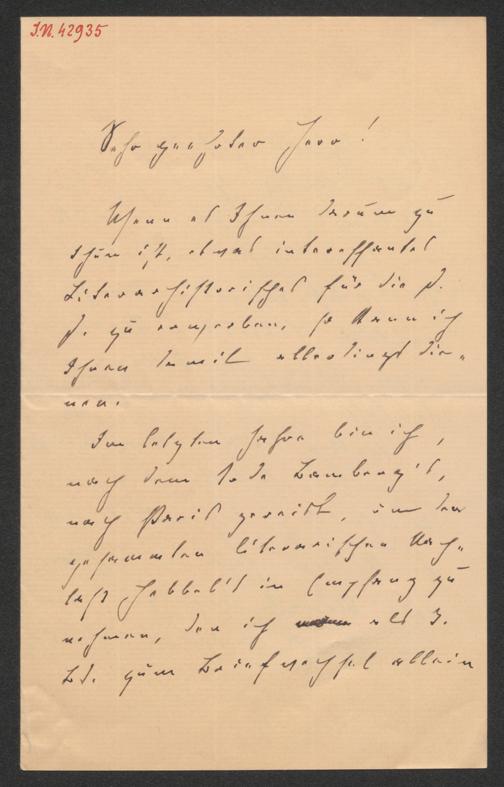 I.N. 42935
Sehr geehrter Herr!
Wenn es Ihnen darum zu
thun ist, etwas interessantes
Literarhistorisches für die N.
P. zu erwerben, so kann ich
Ihnen damit allerdings die-
nen.
Im letzten Jahre bin ich,
nach dem Tode Bamberg's,
nach Paris gereist, um den
gesammten literarischen Nach-
laß Hebbel's in Empfang zu
nehmen, den ich als 3.
Bd. zum Briefwechsel allein